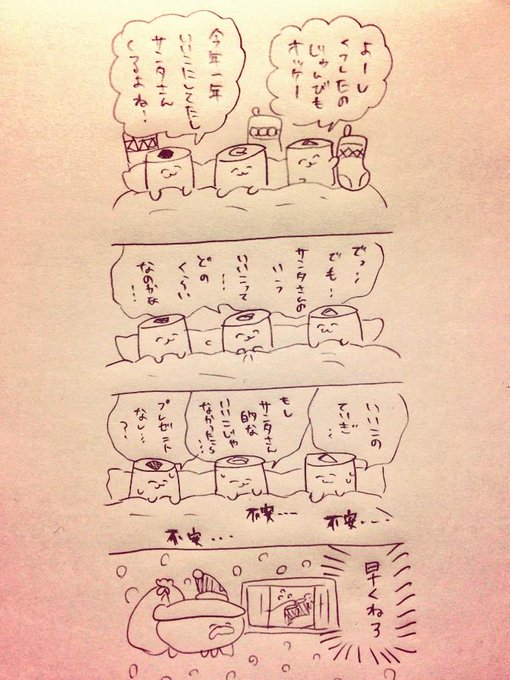 よーし
くつしたの
じゅんびも
オッケー
今年一年
いいこにしてたし
サンタさん
くるよね!
でっ…
でも…
サンタさんの
いう
いいこって
…
どの
くらい
なのかな
…
いいこの
ていぎ…
もし
サンタさん
的な
いいこじゃ
なかったら…
プレゼント
なし…
?
不安…
不安…
不安…
早くねろ